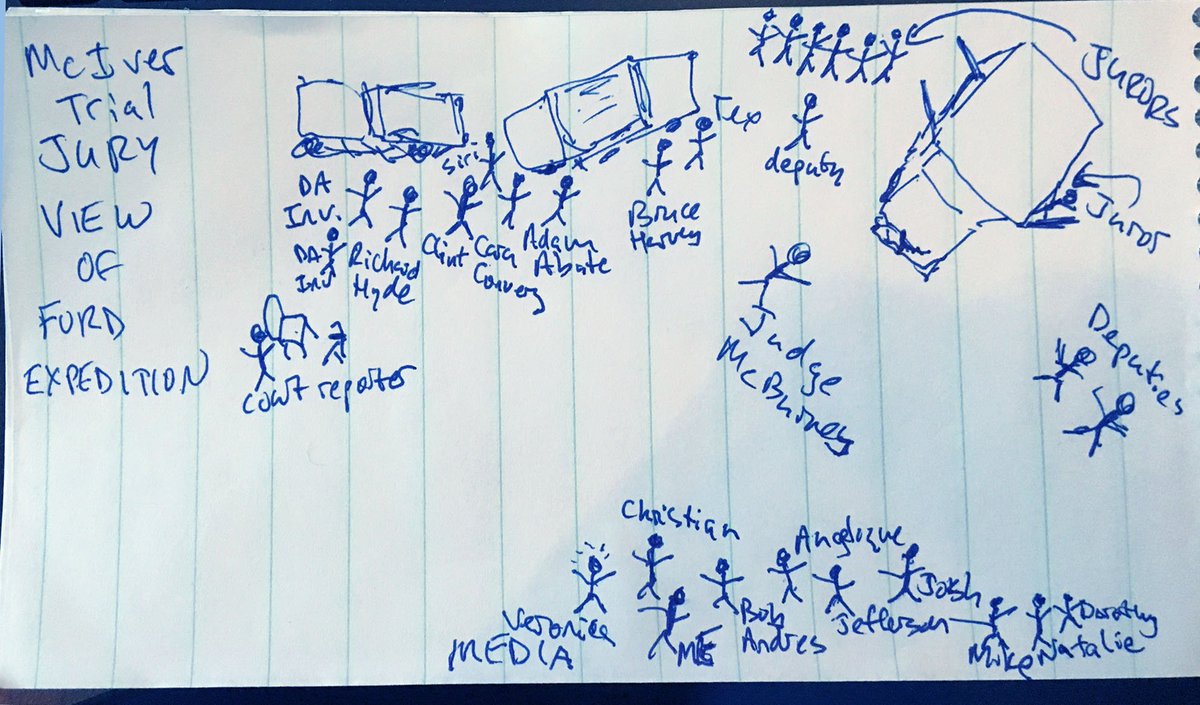 McIver
Trial
JURY
VIEW
OF
FORD
EXPEDITION
JURORS
Tex
deputy
Siri
DA
Inv.
Juror
DA
Inv
Richard
Hyde
Clint
Cara
Convery
Adam
Abate
Bruce
Harvey
Judge
McBurney
Deputies
court reporter
Christian
Angelique
Veronica
MEDIA
ME
Bob
Andres
Josh
Jefferson
Mike
Natalie
Dorothy